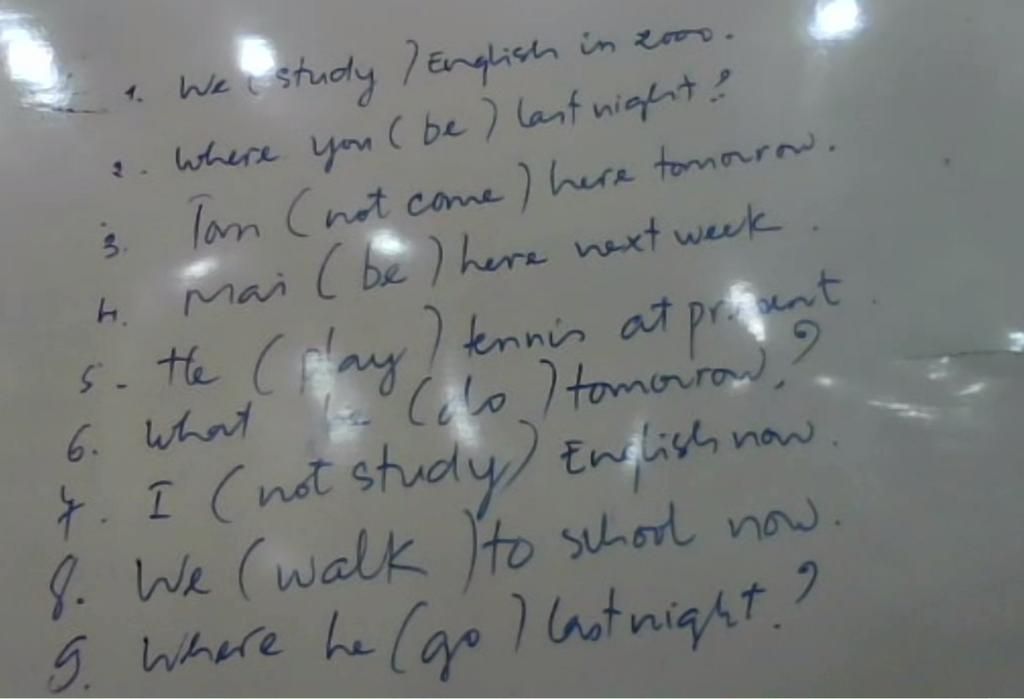 1. We (study) English in 2000.
2. Where you (be) last night?
3. Tam (not come) here tomorrow.
4. Mai (be) here next week.
5. He (play) tennis at present.
6. What he (do) tomorrow.?
7. I (not study) English now.
8. We (walk) to school now.
9. Where he (go) last night.?